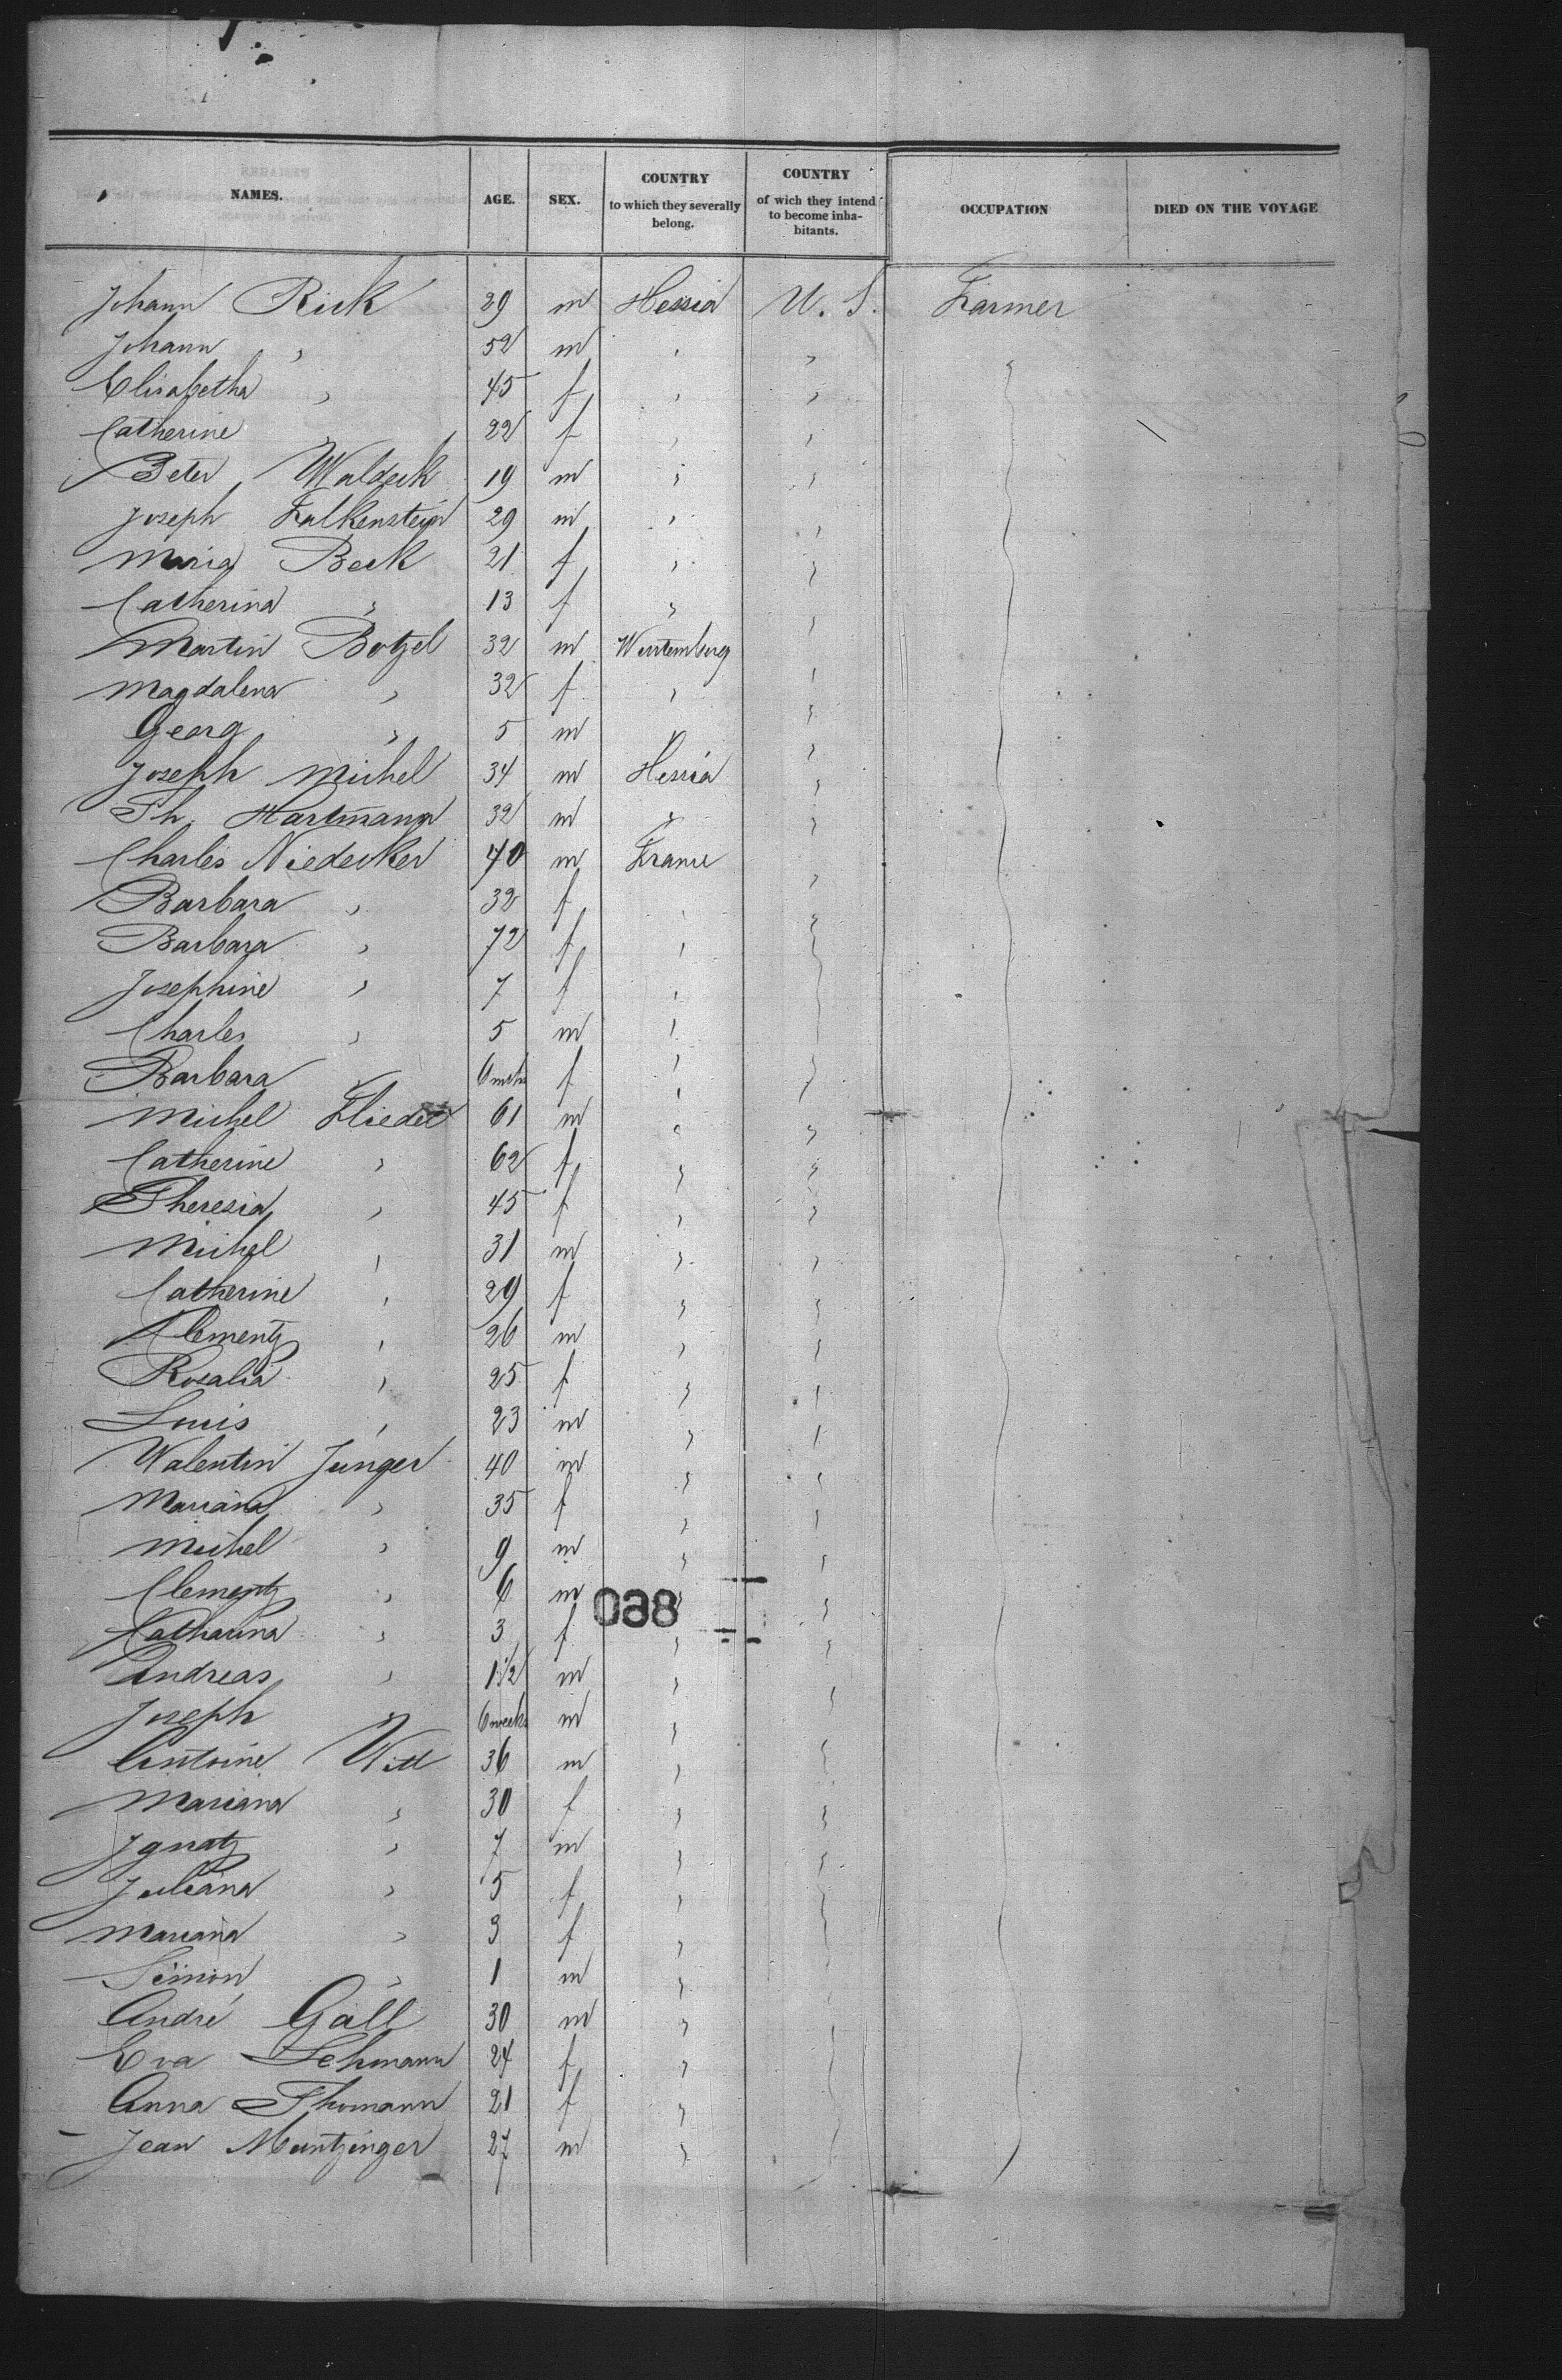 NAMES. AGE. SEX. COUNTRY to which they severally belong. COUNTRY of wich they intend to become inhabitants. OCCUPATION DIED ON THE VOYAGE
Johann Rick 29 m Hessia U. S. Farmer
Johann " 52 m " "
Elisabetha " 45 f " "
Catherine " 22 f " "
Peter Waldeck 19 m " "
Joseph Falkenstein 29 m " "
Maria Beck 21 f " "
Catherina " 13 f " "
Martin Botzel 32 m Wurtemburg "
Magdalena " 32 f " "
Georg " 5 m " "
Joseph Michel 34 m Hessia "
Th. Hartmann 32 m " "
Charles Niedecker 40 m France "
Barbara " 32 f " "
Barbara " 72 f " "
Josephine " 7 f " "
Charles " 5 m " "
Barbara " 6 mths f " "
Michel 61 m " "
Catherine " 62 f " "
Theresia " 45 f " "
Michel " 31 m " "
Catherine " 29 f " "
Clementz " 26 m " "
Rosalia " 25 f " "
Louis " 23 m " "
Valentin Junger 40 m " "
Mariana " 35 f " "
Michel " 9 m " "
Clementz " 6 m " "
Catharina " 3 f " "
Andreas " 1 1/2 m " "
Joseph " 6 weeks m " "
Antoine Witt 36 m " "
Mariana " 30 f " "
Ignatz " 7 m " "
Juliana " 5 f " "
Mariana " 3 f " "
Simon " 1 m " "
André Gall 30 m " "
Eva Lehmann 24 f " "
Anna Thomann 21 f " "
Jean Muntzinger 27 m " "